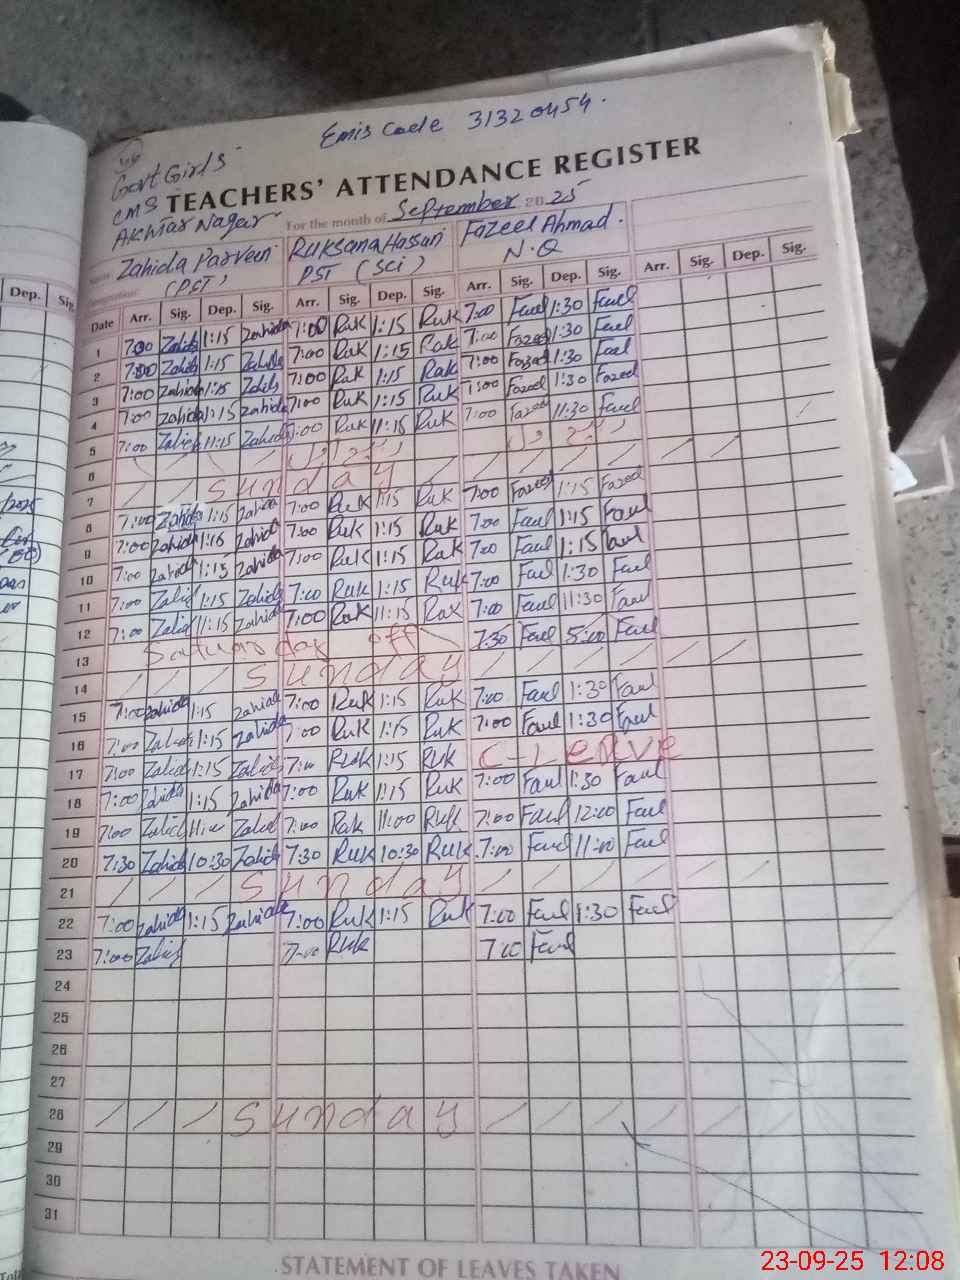 Emis Code 31320454.
Govt Girls
CMS TEACHERS' ATTENDANCE REGISTER
Akhtar Nagar For the month of September 2025
Zahida Parveen Ruksana Hassan Fazeel Ahmad.
(PST) PST (Sci) N.Q
Date Arr. Sig. Dep. Sig. Arr. Sig. Dep. Sig. Arr. Sig. Dep. Sig. Arr. Sig. Dep. Sig.
1 7:00 Zahida 1:15 Zahida 7:00 Ruk 1:15 Ruk 7:00 1:30
2 7:00 Zahida 1:15 Zahida 7:00 Ruk 1:15 Ruk 7:00 Fazeel 1:30
3 7:00 Zahida 1:15 Zahida 7:00 Ruk 1:15 Ruk 7:00 Fazeel 1:30
4 7:00 Zahida 1:15 Zahida 7:00 Ruk 1:15 Ruk 7:00 Fazeel 1:30 Fazeel
5 7:00 11:15 Zahida 7:00 Ruk 11:15 Ruk 7:00 Fazeel 11:30
6
7 Sunday
8 7:00 Zahida 1:15 Zahida 7:00 Ruk 1:15 Ruk 7:00 Fazeel 1:15 Fazeel
9 7:00 Zahida 1:15 Zahida 7:00 Ruk 1:15 Ruk 7:00 1:15
10 7:00 Zahida 1:15 Zahida 7:00 Ruk 1:15 Ruk 7:00 1:15
11 7:00 1:15 Zahida 7:00 Ruk 1:15 Ruk 7:00 1:30
12 7:00 11:15 Zahida 7:00 Ruk 11:15 Ruk 7:00 11:30
13 Saturday off 7:30 5:00
14 Sunday
15 7:00 Zahida 1:15 Zahida 7:00 Ruk 1:15 Ruk 7:00 1:30
16 7:00 Zahida 1:15 Zahida 7:00 Ruk 1:15 Ruk 7:00 1:30
17 7:00 Zahida 1:15 Zahida 7:00 Ruk 1:15 Ruk C-Leave
18 7:00 Zahida 1:15 Zahida 7:00 Ruk 1:15 Ruk 7:00 1:30
19 7:00 11:00 7:00 Ruk 11:00 Ruk 7:00 12:00
20 7:30 Zahida 10:30 Zahida 7:30 Ruk 10:30 Ruk 7:00 11:00
21 Sunday
22 7:00 Zahida 1:15 Zahida 7:00 Ruk 1:15 Ruk 7:00 1:30
23 7:00 7:00 Ruk 7:00
24
25
26
27
28 Sunday
29
30
31
STATEMENT OF LEAVES TAKEN
23-09-25 12:08